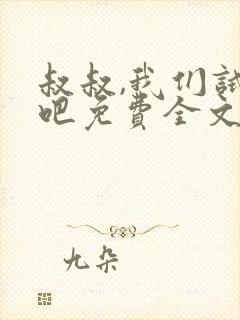 叔叔,我们试
吧免费全文
九朵